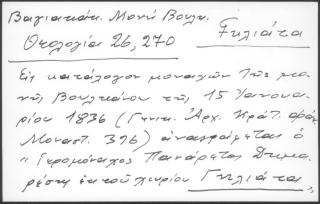 Βαγιακάκ. Μονή Βουλκ.
Θεολογία 26, 270 Γκλιάτα
Εις κατάλογον μοναχών της μο-
νής Βουλκάνου της 15 Ιανουα-
ρίου 1836 (Γενικ. Αρχ. Κράτ. φάκ.
Μοναστ. 396) αναγράφεται ο
"Ιερομόναχος Πανάρετος Δημα-
ρέσης εκ του χωρίου Γκλιάτα"